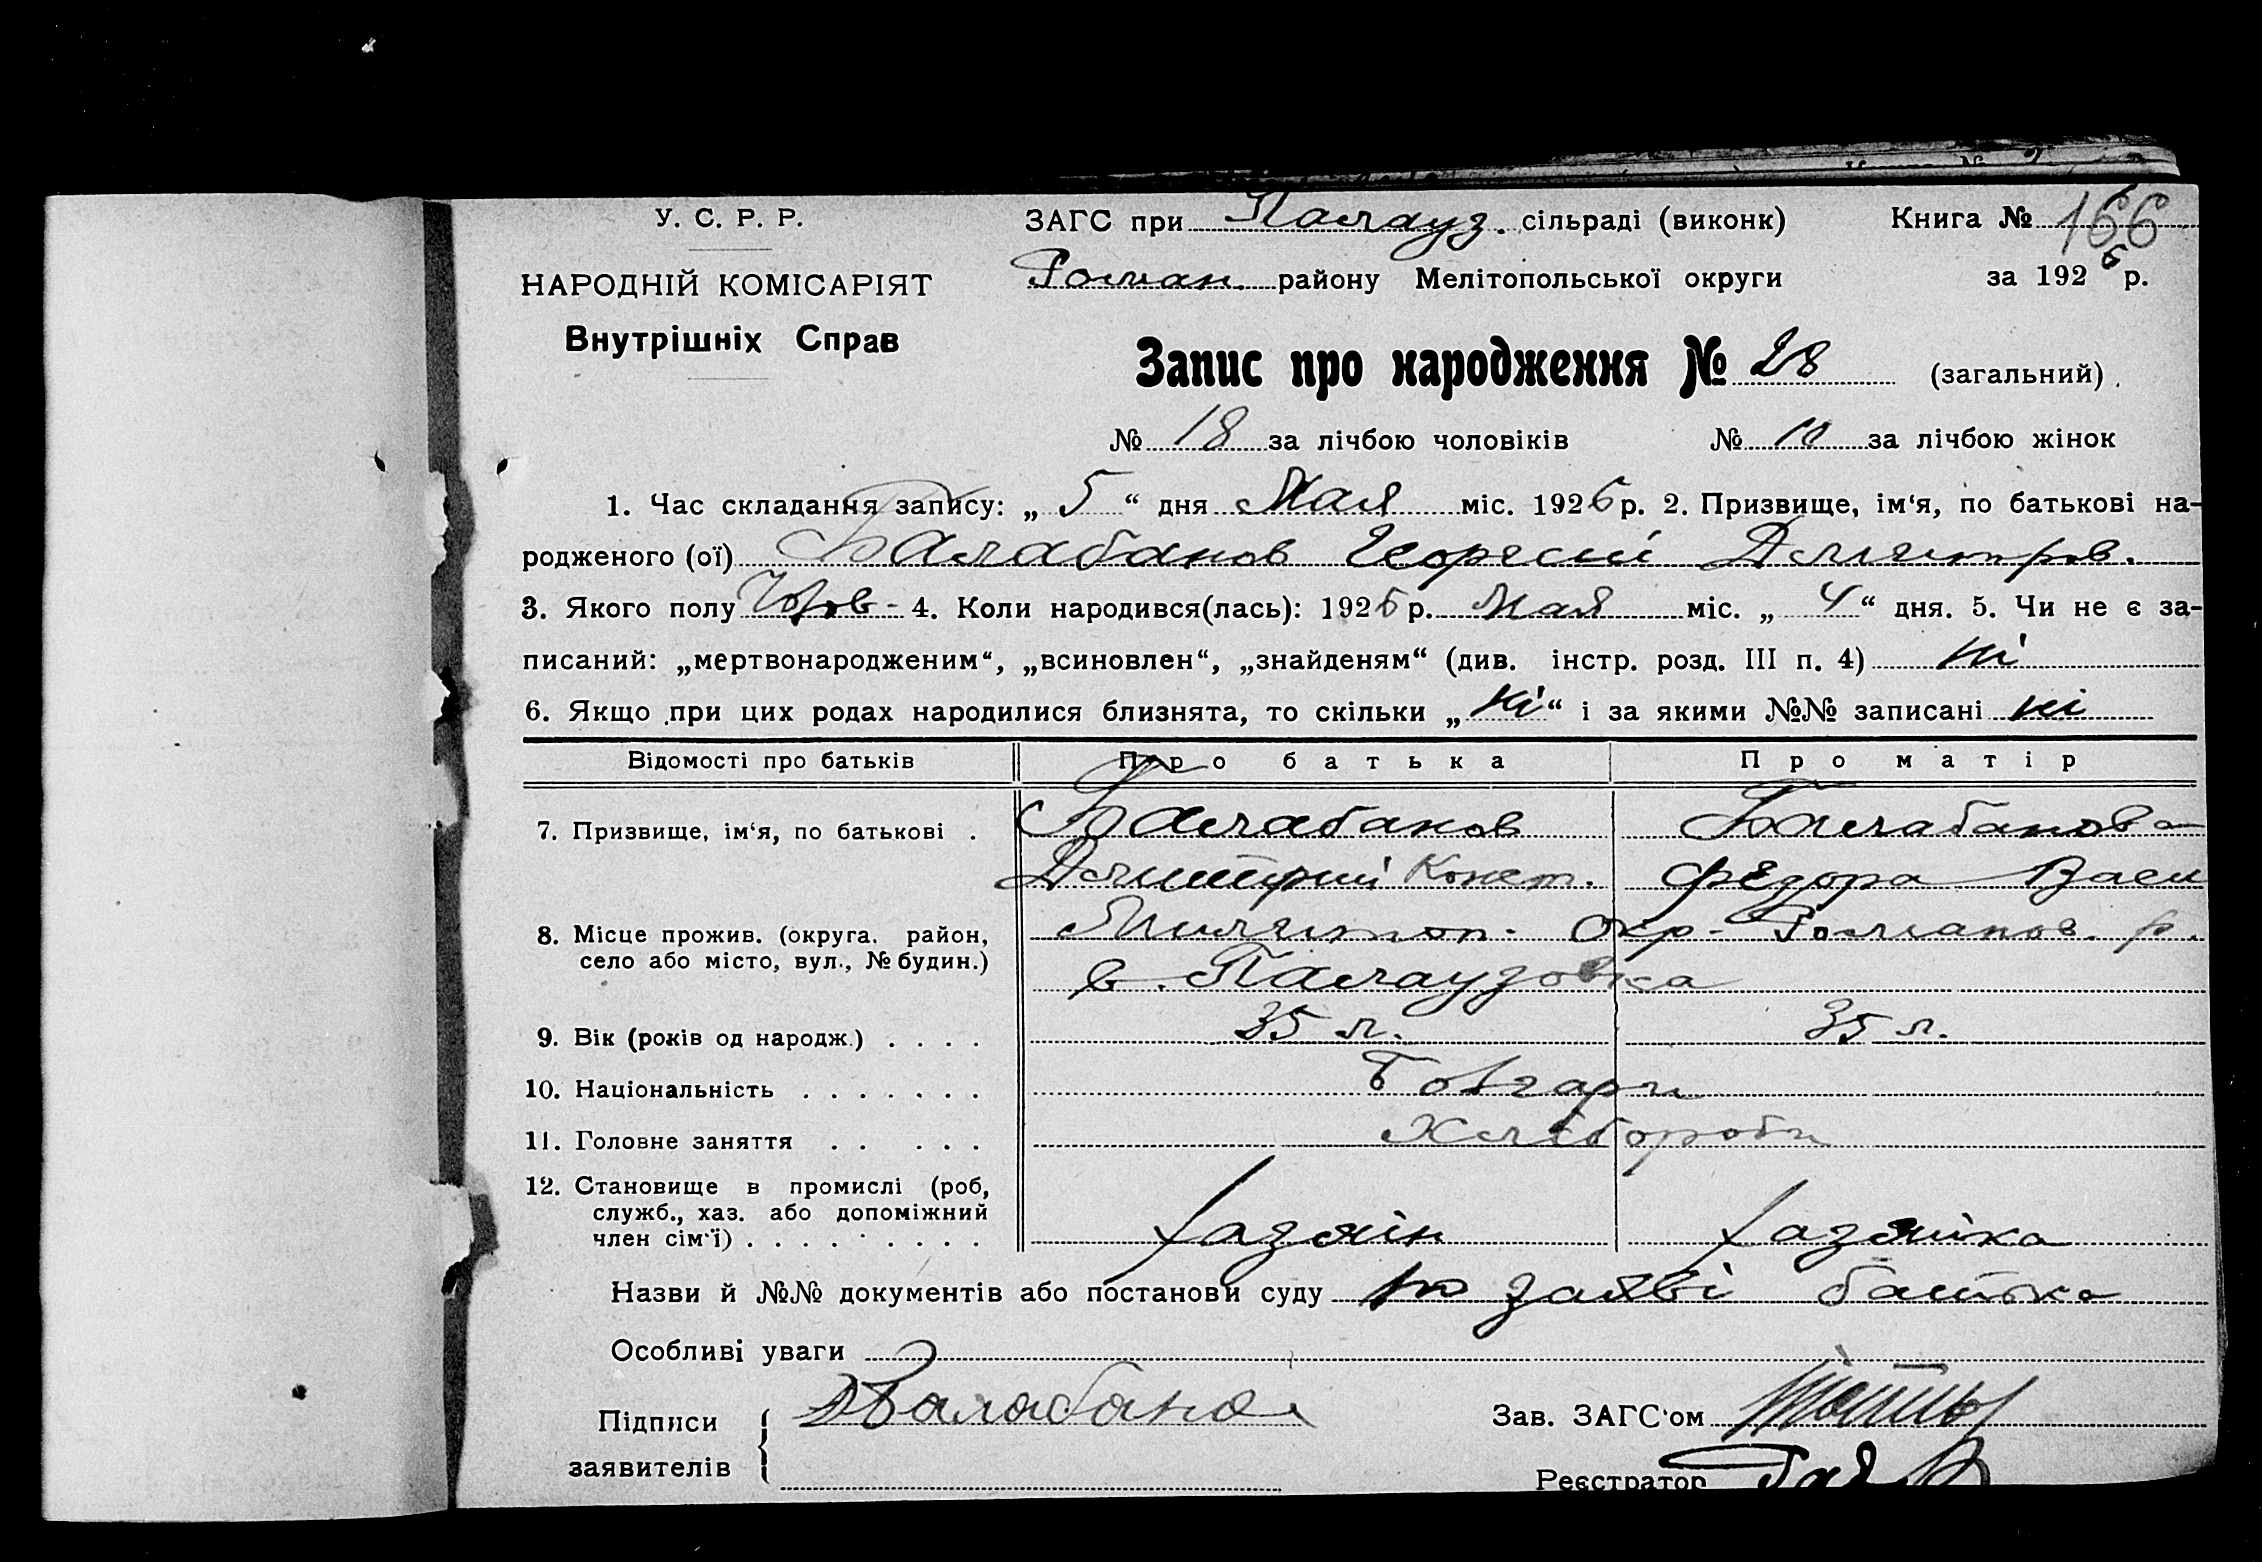 У. С. Р. Р.
НАРОДНІЙ КОМІСАРІЯТ
Внутрішніх Справ
ЗАГС при Палауз. сільраді (виконк) Книга № 166
Роман. району Мелітопольської округи за 1926 р.
Запис про народження № 28 (загальний)
№ 18 за лічбою чоловіків № 10 за лічбою жінок
1. Час складання запису: „ 5 “ дня Мая міс. 1926 р. 2. Призвище, ім‘я, по батькові на-
родженого (ої) Балабанов Георгий Дмитров.
3. Якого полу Чолов- 4. Коли народився(лась): 1926 р. Мая міс. „ 4 “ дня. 5. Чи не є за-
писаний: „мертвонародженим“, „всиновлен“, „знайденям“ (див. інстр. розд. III п. 4) ні
6. Якщо при цих родах народилися близнята, то скільки „ ні “ і за якими №№ записані ні
Відомості про батьків Про батька Про матір
7. Призвище, ім‘я, по батькові . Балабанов Балабанова
Дмитрий Конст. Федора Васи
8. Місце прожив. (округа, район, Милитоп. Окр- Романов. р.
село або місто, вул., № будин.) в. Палаузовка
9. Вік (років од народж.) . . . . 35 л. 35 л.
10. Національність . . . . . . . Болгари
11. Головне заняття . . . . . Хлібороби
12. Становище в промислі (роб,
служб., хаз. або допоміжний
член сім‘ї) . . . . . . . . . Хазяїн Хазяйка
Назви й №№ документів або постанови суду по заяві батька
Особливі уваги
Підписи ДБалабанов Зав. ЗАГС‘ом
заявителів Реєстратор